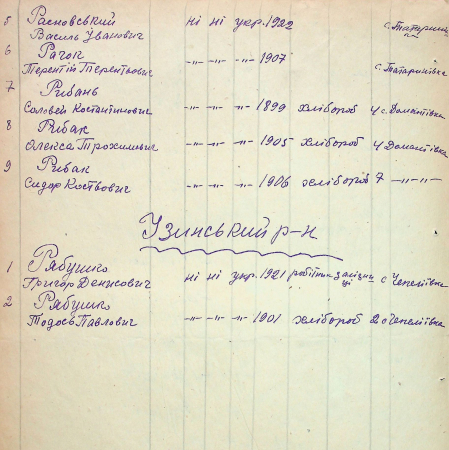 5 Расновський ні ні укр. 1922 с. Татарин
Василь Іванович
6 Рачок -"- -"- -"- 1907 с. Татаринівка
Терентій Терентьович
7 Рибань
Соловей Костантинович -"- -"- -"- 1899 хлібороб 4 с. Домантівка
8 Рибак
Олекса Трохимович -"- -"- -"- 1905 хлібороб 4 Домантівка
9 Рибак
Сидор Костьович -"- -"- -"- 1906 хлібороб 7 -"- -"-
Узинський р-н
1 Рябушко
Григор Денисович ні ні укр. 1921 робітник залізниці с Чепеліївка
2 Рябушко
Тодось Павлович -"- -"- -"- 1901 хлібороб 2 с Чепеліївка